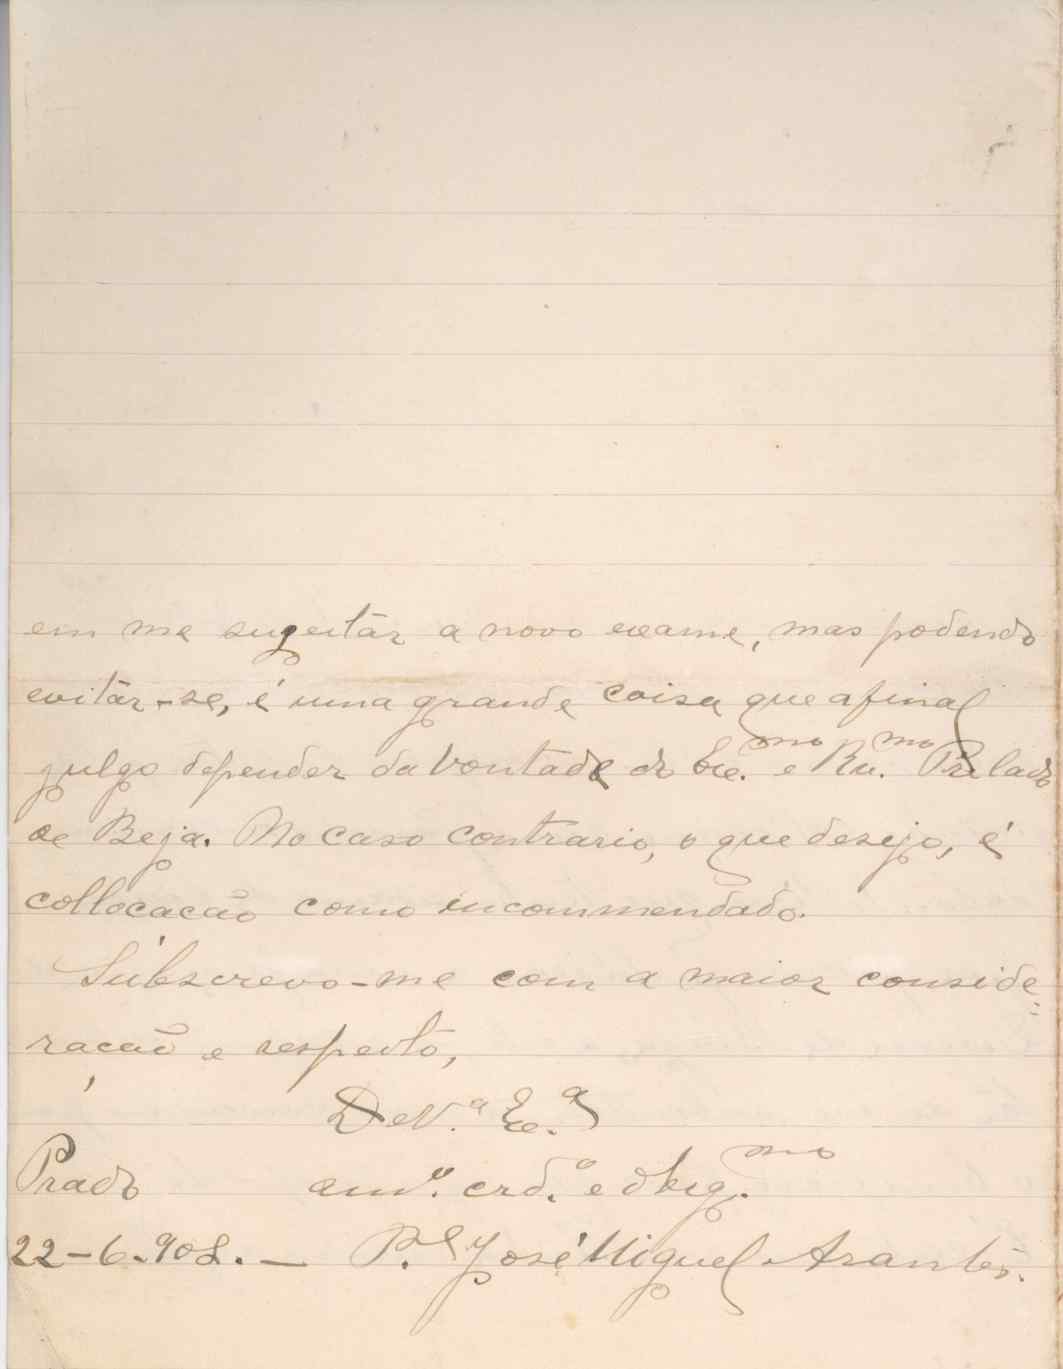 em me sugeitár a novo exame, mas podendo
evitár-se, é uma grande coisa que afinal
julgo depender da vontade do Exc.mo e Rv.mo Prelado
de Beja. No caso contrario, o que desejo, é
collocacão como incommendado.
Subscrevo-me com a maior conside=
ração e respeito,
De V.ª Exc.ª
Prado am.º crd.º e obrg.mo
22-6-908. — P.e José Miguel Arantes.